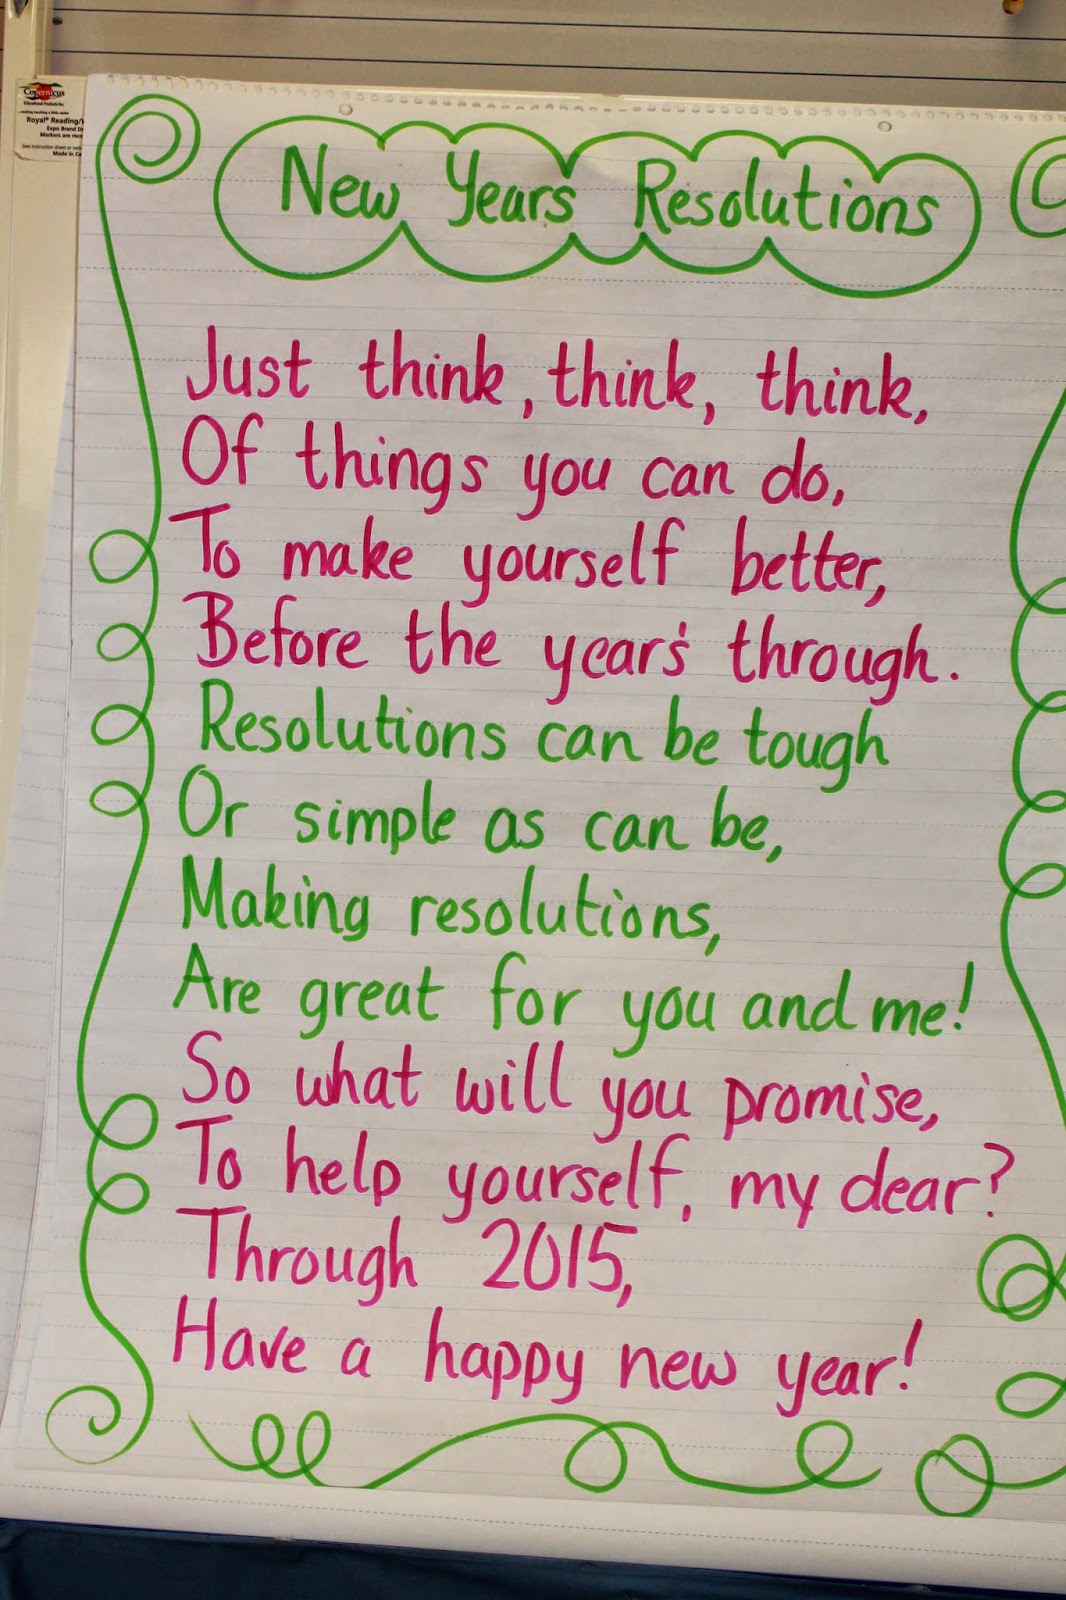 Copernicus
Educational Products Inc.
Royal® Reading/
Expo Brand
Markers are
Made in
New Years Resolutions
Just think, think, think,
Of things you can do,
To make yourself better,
Before the year's through.
Resolutions can be tough
Or simple as can be,
Making resolutions,
Are great for you and me!
So what will you promise,
To help yourself, my dear?
Through 2015,
Have a happy new year!